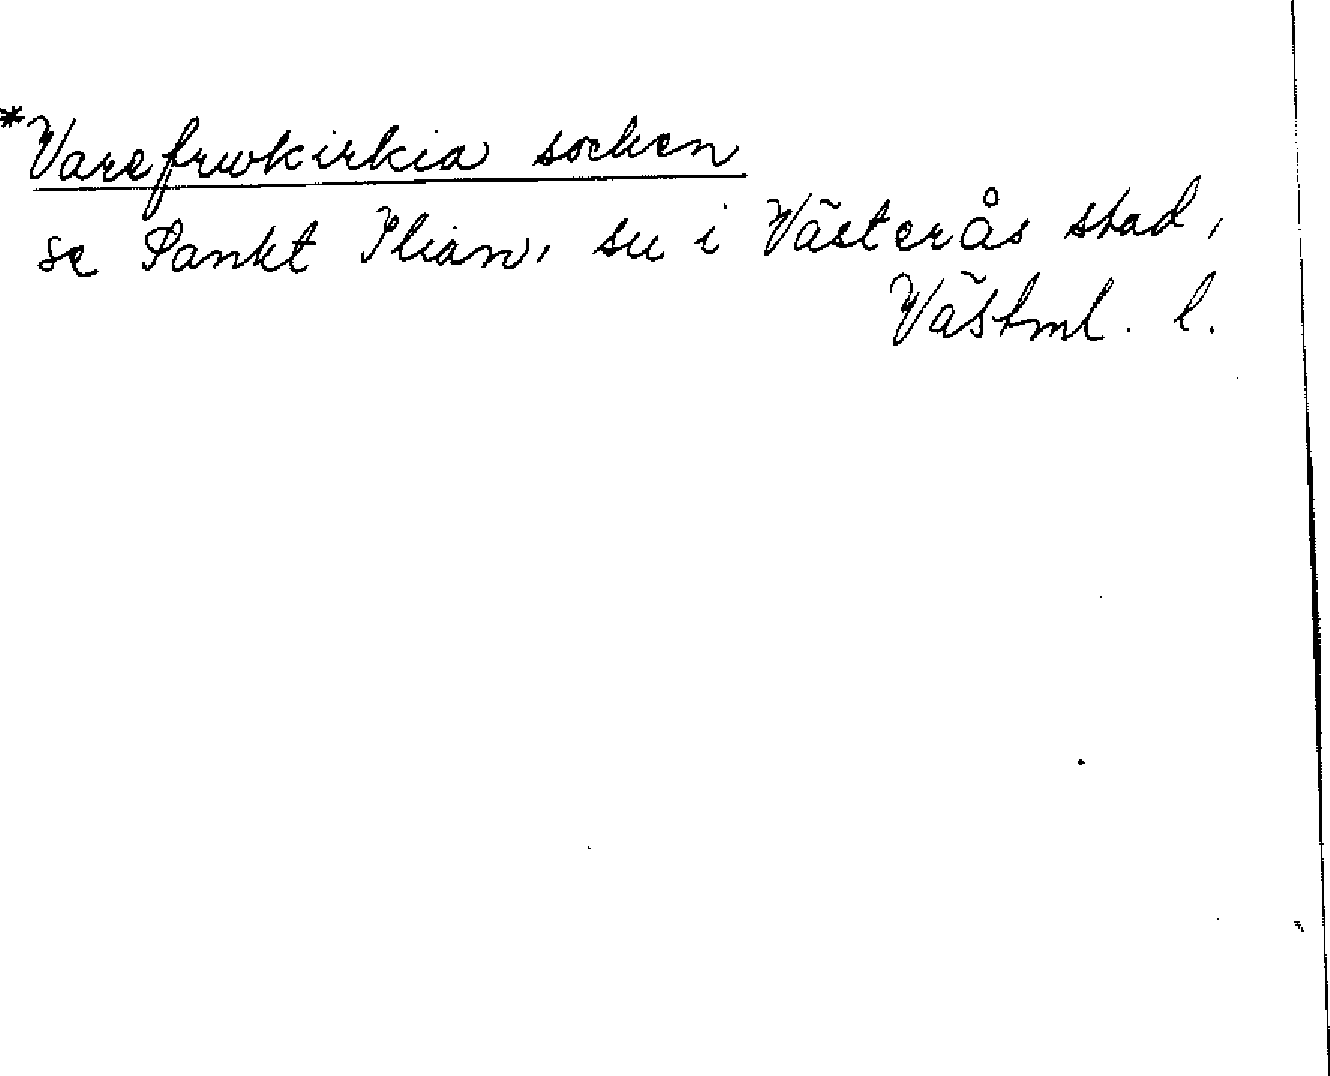 *Varefrwkirkia socken
se Sankt Ilian, su i Västerås stad,
Västml. l.